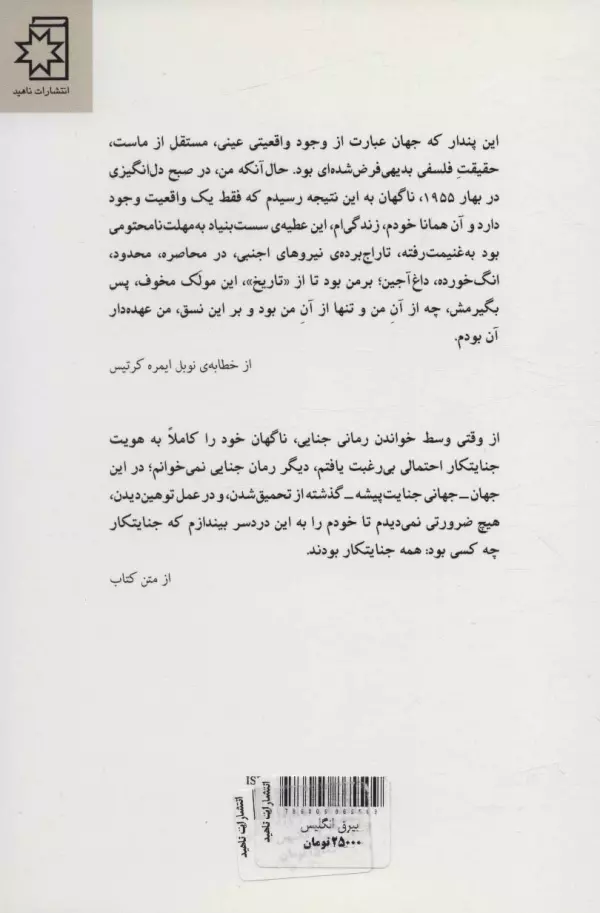 انتشارات ناهید
این پندار که جهان عبارت از وجود واقعیتی عینی، مستقل از ماست،
حقیقتِ فلسفی بدیهی‌فرض‌شده‌ای بود. حال‌آنکه من، در صبح دل‌انگیزی
در بهار ۱۹۵۵، ناگهان به این نتیجه رسیدم که فقط یک واقعیت وجود
دارد و آن همانا خودم، زندگی‌ام، این عطیه‌ی سست‌بنیاد به‌مهلت‌نامحتومی
بود به‌غنیمت‌رفته، تاراج‌برده‌ی نیروهای اجنبی، در محاصره، محدود،
انگ‌خورده، داغ‌آجین؛ برمن بود تا از «تاریخ»، این مولَک مخوف، پس
بگیرمش، چه از آنِ من و تنها از آنِ من بود و بر این نسق، من عهده‌دار
آن بودم.
از خطابه‌ی نوبل ایمره کرتیس
از وقتی وسط خواندن رمانی جنایی، ناگهان خود را کاملاً به هویت
جنایتکار احتمالی بی‌رغبت یافتم، دیگر رمان جنایی نمی‌خوانم؛ در این
جهان ــ جهانی جنایت‌پیشه ــ گذشته از تحمیق‌شدن، و در عمل توهین‌دیدن،
هیچ ضرورتی نمی‌دیدم تا خودم را به این دردسر بیندازم که جنایتکار
چه کسی بود: همه جنایتکار بودند.
از متن کتاب
IS
انتشارات ناهید
انتشارات ناهید
بیرق انگلیس
۲۵۰۰۰ تومان